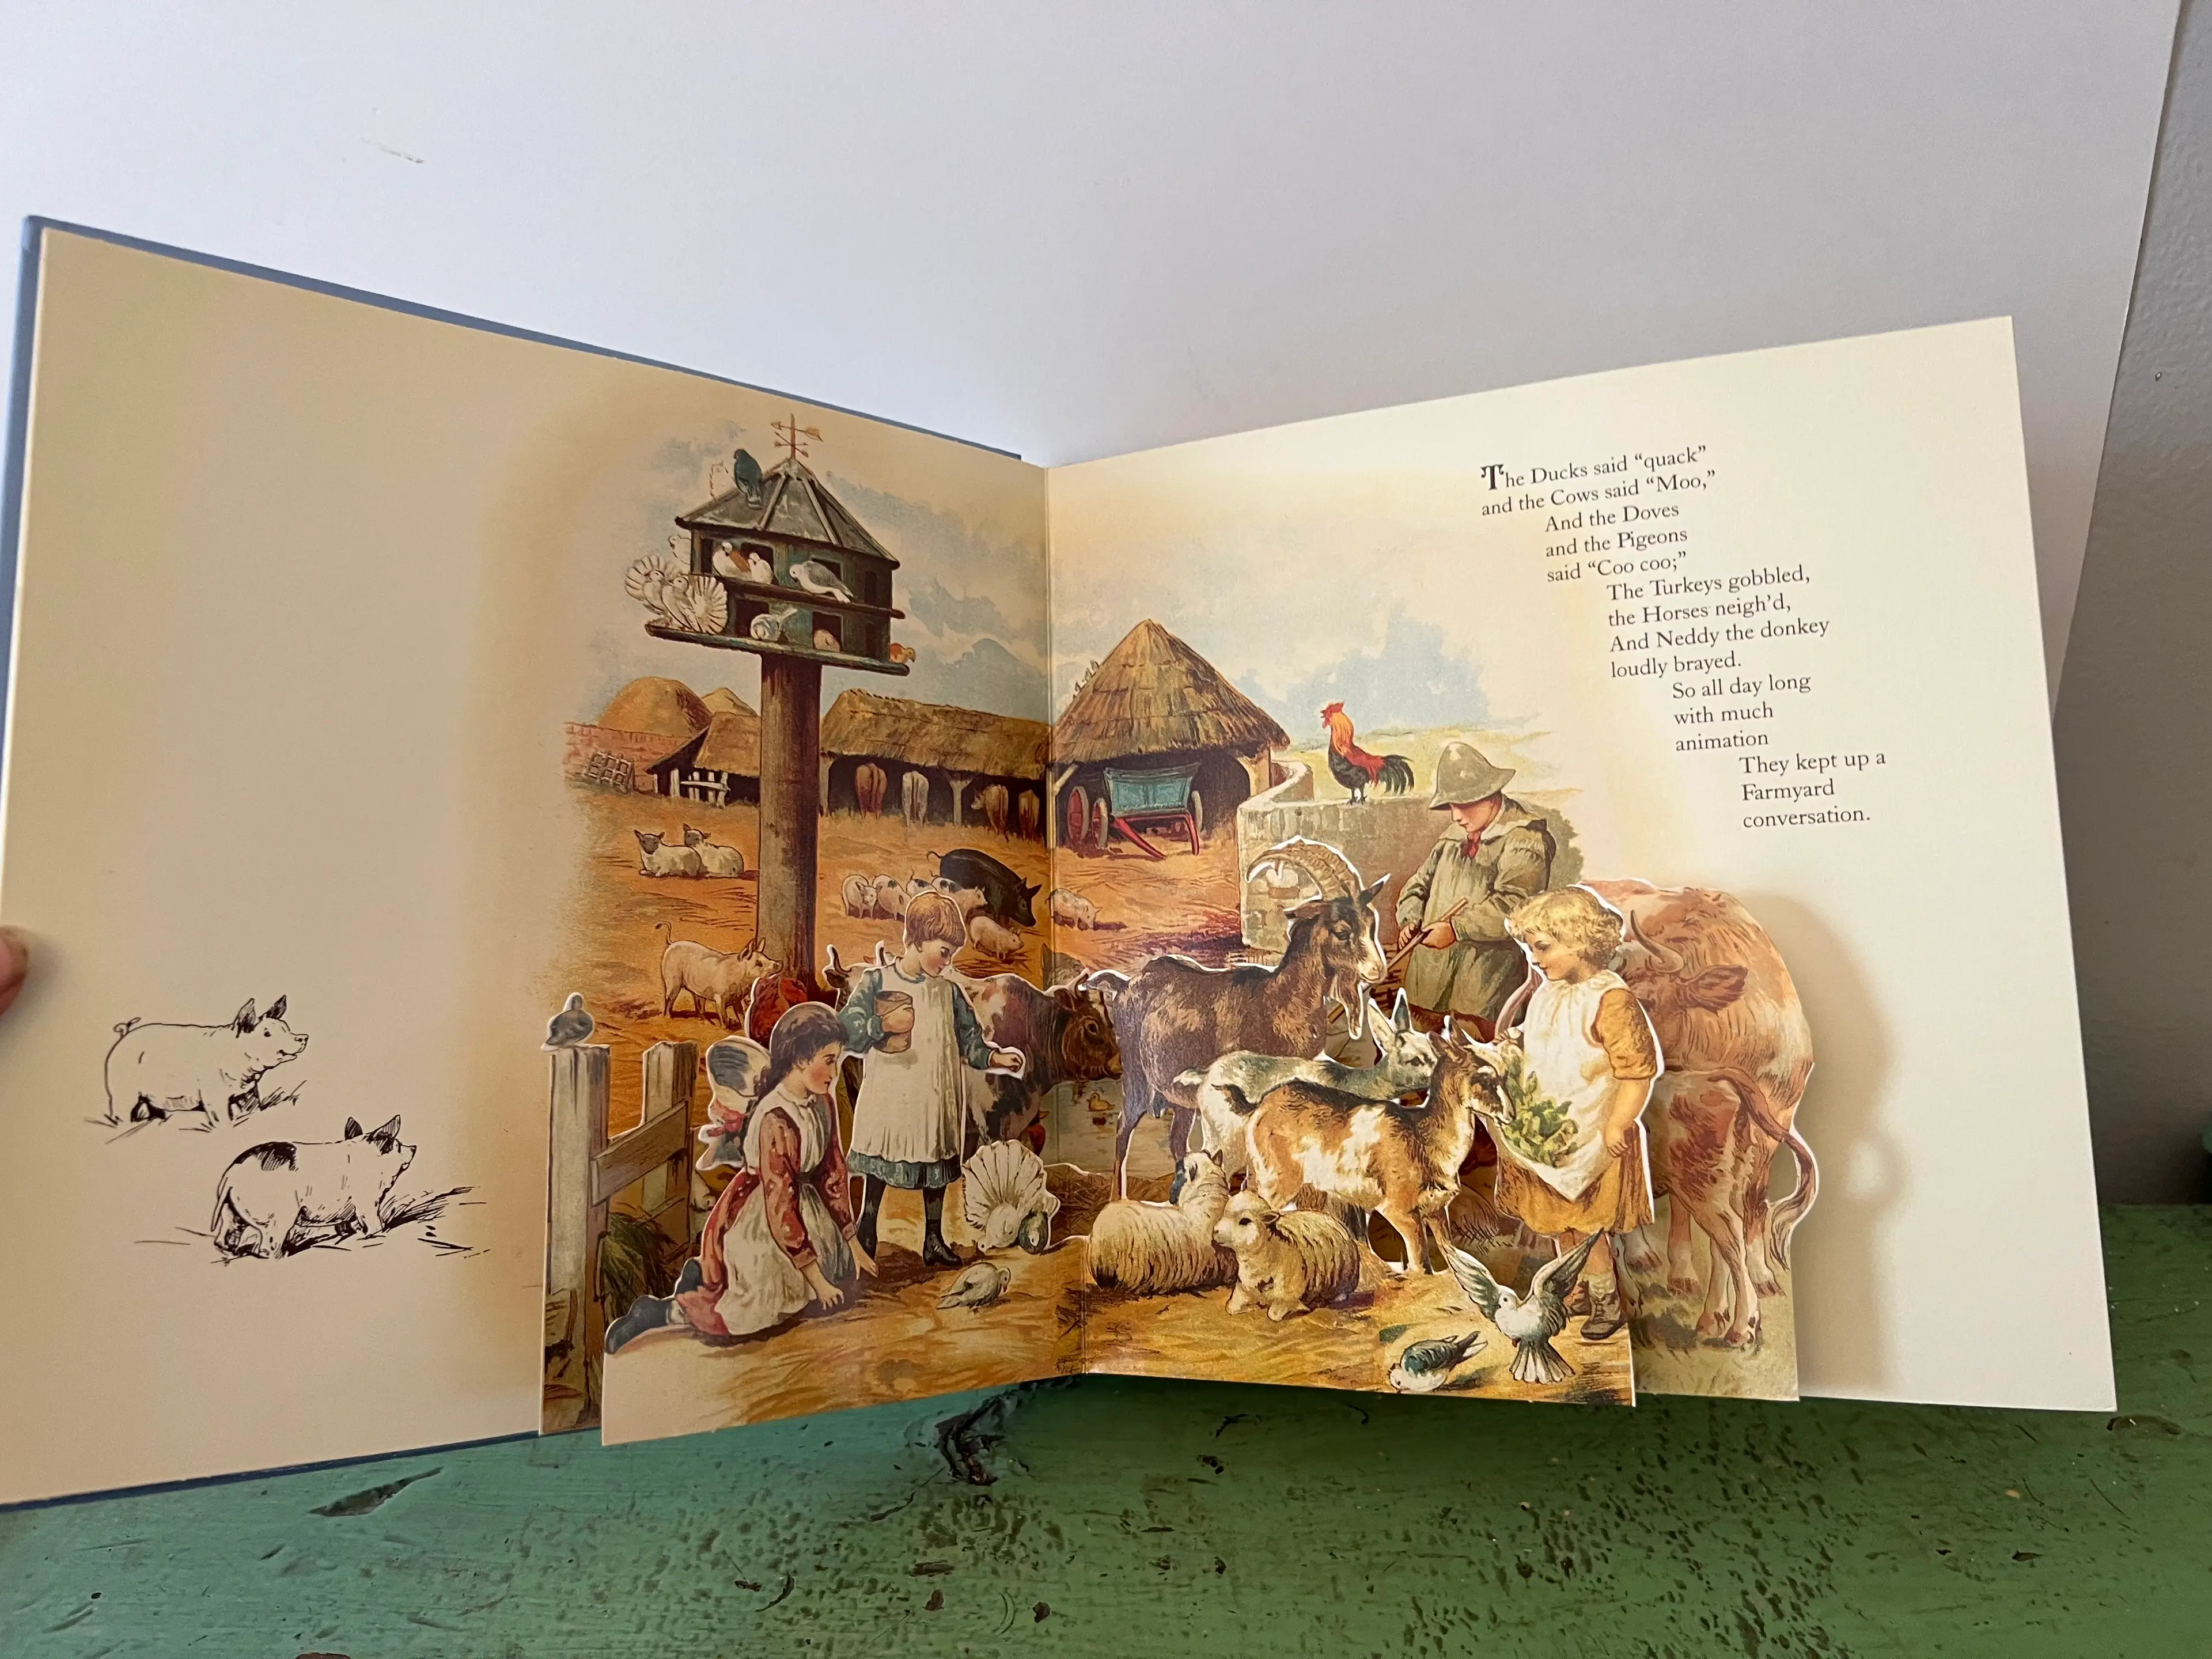 The Ducks said “quack”
and the Cows said “Moo,”
And the Doves
and the Pigeons
said “Coo coo;”
The Turkeys gobbled,
the Horses neigh’d,
And Neddy the donkey
loudly brayed.
So all day long
with much
animation
They kept up a
Farmyard
conversation.